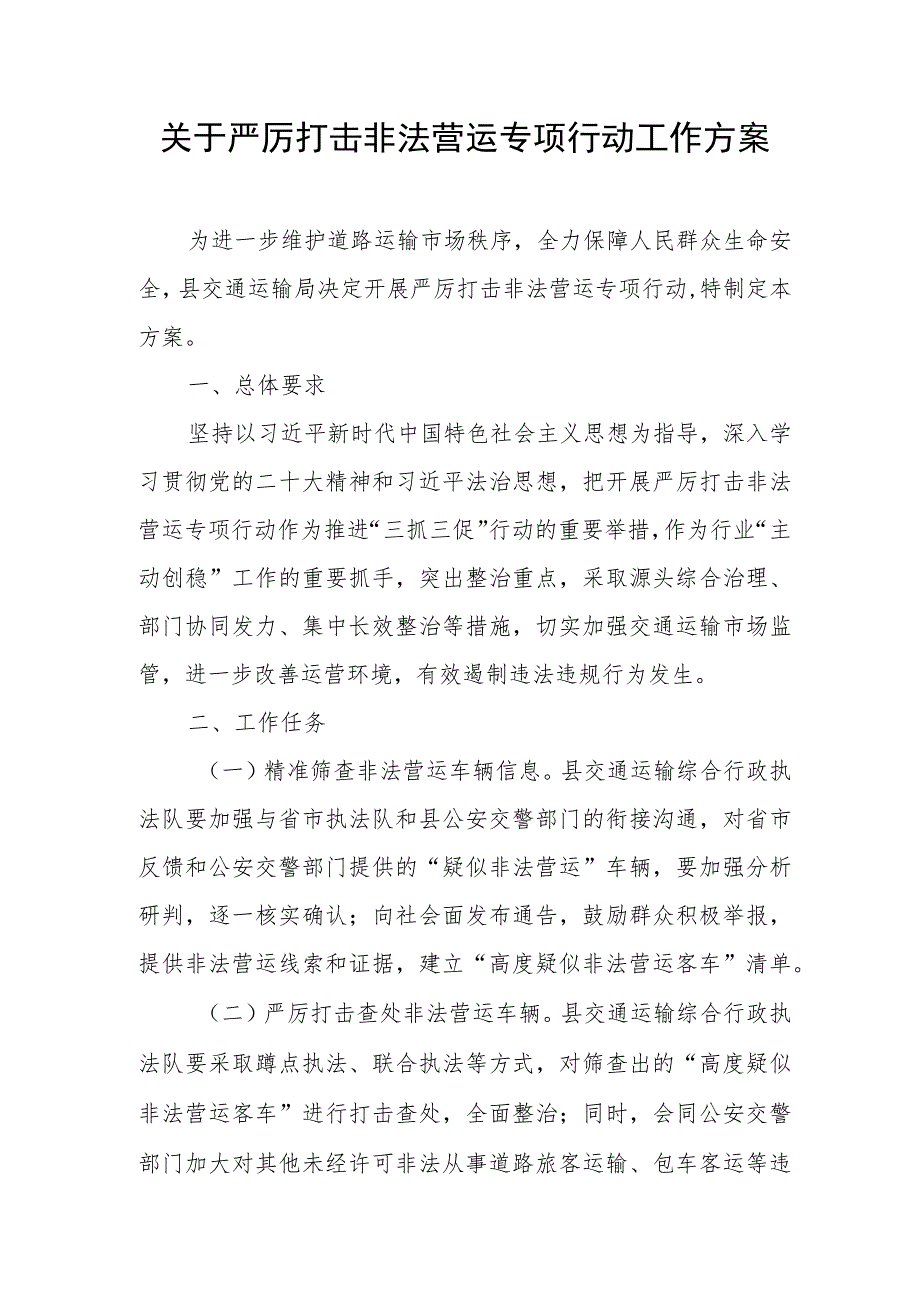 关于严厉打击非法营运专项行动工作方案
为进一步维护道路运输市场秩序，全力保障人民群众生命安
全，县交通运输局决定开展严厉打击非法营运专项行动,特制定本
方案。
一、总体要求
坚持以习近平新时代中国特色社会主义思想为指导，深入学
习贯彻党的二十大精神和习近平法治思想，把开展严厉打击非法
营运专项行动作为推进“三抓三促”行动的重要举措，作为行业“主
动创稳”工作的重要抓手，突出整治重点，采取源头综合治理、
部门协同发力、集中长效整治等措施，切实加强交通运输市场监
管，进一步改善运营环境，有效遏制违法违规行为发生。
二、工作任务
（一）精准筛查非法营运车辆信息。县交通运输综合行政执
法队要加强与省市执法队和县公安交警部门的衔接沟通，对省市
反馈和公安交警部门提供的“疑似非法营运”车辆，要加强分析
研判，逐一核实确认；向社会面发布通告，鼓励群众积极举报，
提供非法营运线索和证据，建立“高度疑似非法营运客车”清单。
（二）严厉打击查处非法营运车辆。县交通运输综合行政执
法队要采取蹲点执法、联合执法等方式，对筛查出的“高度疑似
非法营运客车”进行打击查处，全面整治；同时，会同公安交警
部门加大对其他未经许可非法从事道路旅客运输、包车客运等违